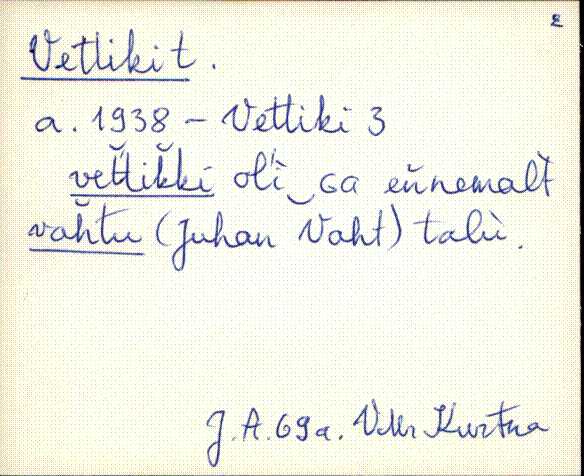 2
Vetliki t.
a. 1938 – Vetliki 3
vet̆lik̆ki oli‿ga eňnemalt̆
văhtu (Juhan Vaht) talu.
J. A. 69 a. VMr Kurtna